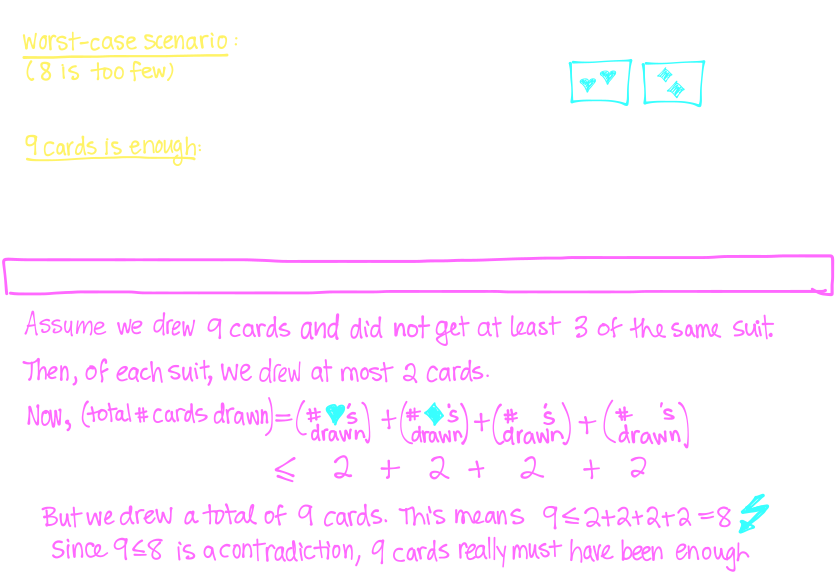 Worst-case scenario:
(8 is too few)
9 cards is enough:
Assume we drew 9 cards and did not get at least 3 of the same suit.
Then, of each suit, we drew at most 2 cards.
Now, (total # cards drawn) = (# ♥'s drawn) + (# ♦'s drawn) + (# 's drawn) + (# 's drawn)
≤ 2 + 2 + 2 + 2
But we drew a total of 9 cards. This means 9 ≤ 2+2+2+2 = 8
Since 9≤8 is a contradiction, 9 cards really must have been enough